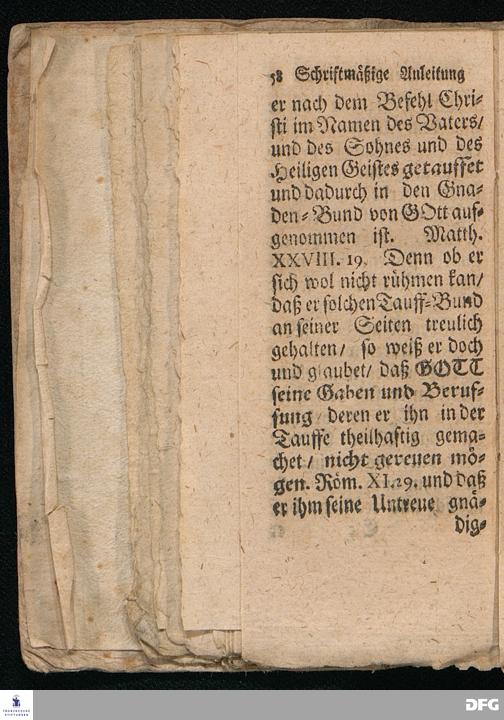 58 Schriftmäßige Anleitung
er nach dem Befehl Chri-
sti im Namen des Vaters/
und des Sohnes und des
Heiligen Geistes getauffet
und dadurch in den Gna-
den-Bund von GOtt auf-
genommen ist. Matth.
XXVIII. 19. Denn ob er
sich wol nicht rühmen kan/
daß er solchen Tauff-Bund
an seiner Seiten treulich
gehalten/ so weiß er doch
und glaubet/ daß GOTT
seine Gaben und Beruf-
fung/ deren er ihn in der
Tauffe theilhaftig gema-
chet/ nicht gereuen mö-
gen. Röm. XI. 29. und daß
er ihm seine Untreue gnä-
dig-
DFG